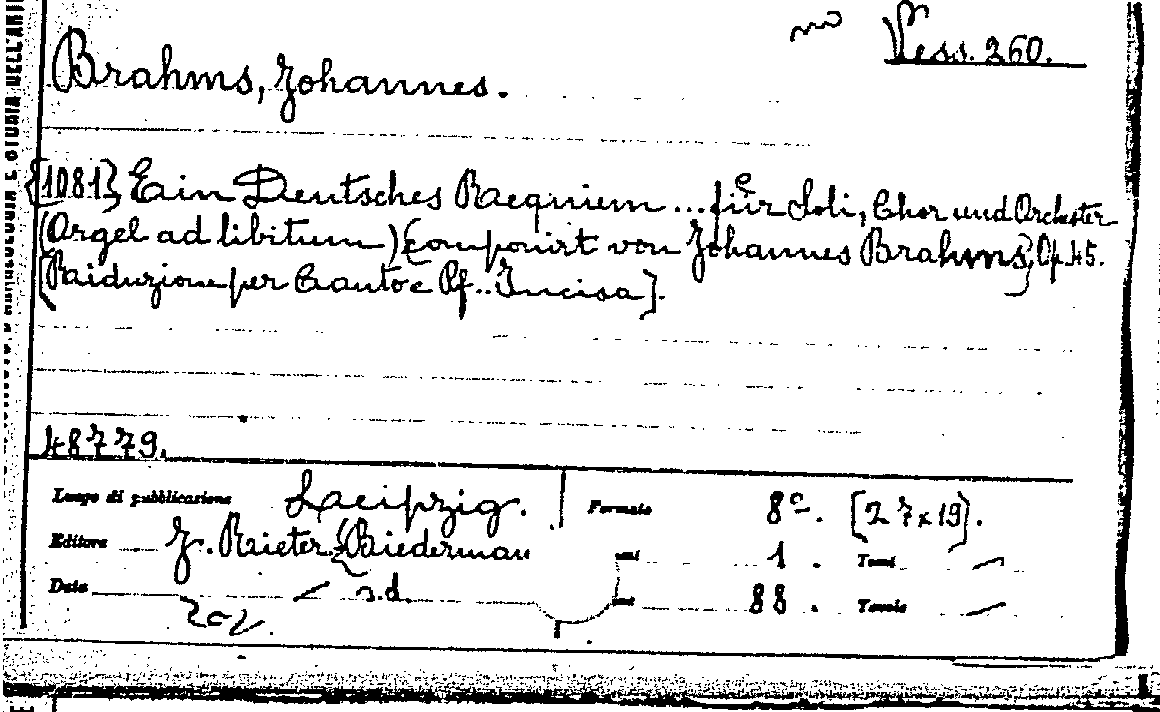 Vess. 260.
Brahms, Johannes.
[1081] Ein Deutsches Requiem ... für Soli, Chor und Orchester
(Orgel ad libitum) componirt von Johannes Brahms, Op. 45.
[Riduzione per Canto e Pf.. Incisa].
48779.
Luogo di pubblicazione Leipzig. Formato 8º. [27x19].
Editore J. Rieter-Biederman umi 1. Tomi —
Data — s.d. umi 88. Tavole —